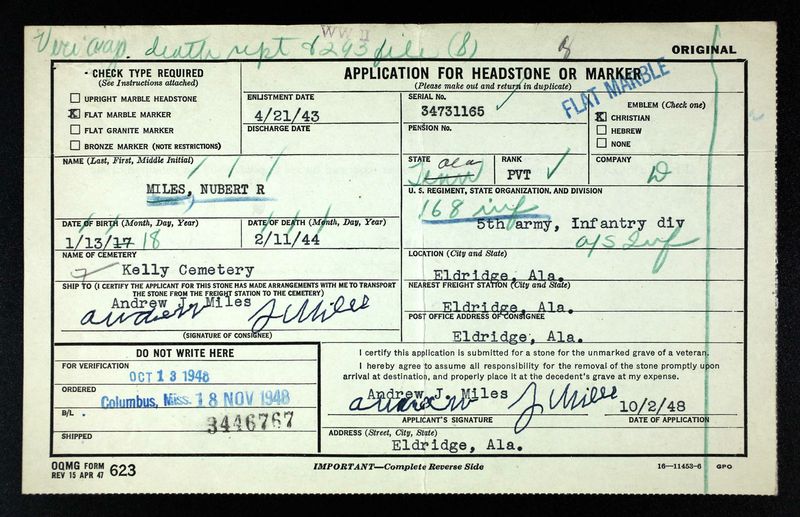 WW II
Veri ovp. death rept & 293 file (8)
ORIGINAL
· CHECK TYPE REQUIRED
(See Instructions attached)
UPRIGHT MARBLE HEADSTONE
X FLAT MARBLE MARKER
FLAT GRANITE MARKER
BRONZE MARKER (NOTE RESTRICTIONS)
APPLICATION FOR HEADSTONE OR MARKER
(Please make out and return in duplicate)
FLAT MARBLE
ENLISTMENT DATE
4/21/43
DISCHARGE DATE
SERIAL No.
34731165
PENSION No.
EMBLEM (Check one)
X CHRISTIAN
HEBREW
NONE
NAME (Last, First, Middle Initial)
MILES, NUBERT R
STATE
Tenn Ala
RANK
PVT
COMPANY
D
U. S. REGIMENT, STATE ORGANIZATION, AND DIVISION
168 inf
5th army, Infantry div
A/S Inf
DATE OF BIRTH (Month, Day, Year)
1/13/17 18
DATE OF DEATH (Month, Day, Year)
2/11/44
NAME OF CEMETERY
Kelly Cemetery
LOCATION (City and State)
Eldridge, Ala.
SHIP TO (I CERTIFY THE APPLICANT FOR THIS STONE HAS MADE ARRANGEMENTS WITH ME TO TRANSPORT
THE STONE FROM THE FREIGHT STATION TO THE CEMETERY)
Andrew J. Miles
Andrew J Miles
(SIGNATURE OF CONSIGNEE)
NEAREST FREIGHT STATION (City and State)
Eldridge, Ala.
POST OFFICE ADDRESS OF CONSIGNEE
Eldridge, Ala.
DO NOT WRITE HERE
FOR VERIFICATION
OCT 13 1948
ORDERED
Columbus, Miss. 18 NOV 1948
B/L
3446767
SHIPPED
I certify this application is submitted for a stone for the unmarked grave of a veteran.
I hereby agree to assume all responsibility for the removal of the stone promptly upon
arrival at destination, and properly place it at the decedent's grave at my expense.
Andrew J. Miles
Andrew J Miles
10/2/48
APPLICANT'S SIGNATURE
DATE OF APPLICATION
ADDRESS (Street, City, State)
Eldridge, Ala.
OQMG FORM
REV 15 APR 47 623
IMPORTANT—Complete Reverse Side
16—11453-6 GPO